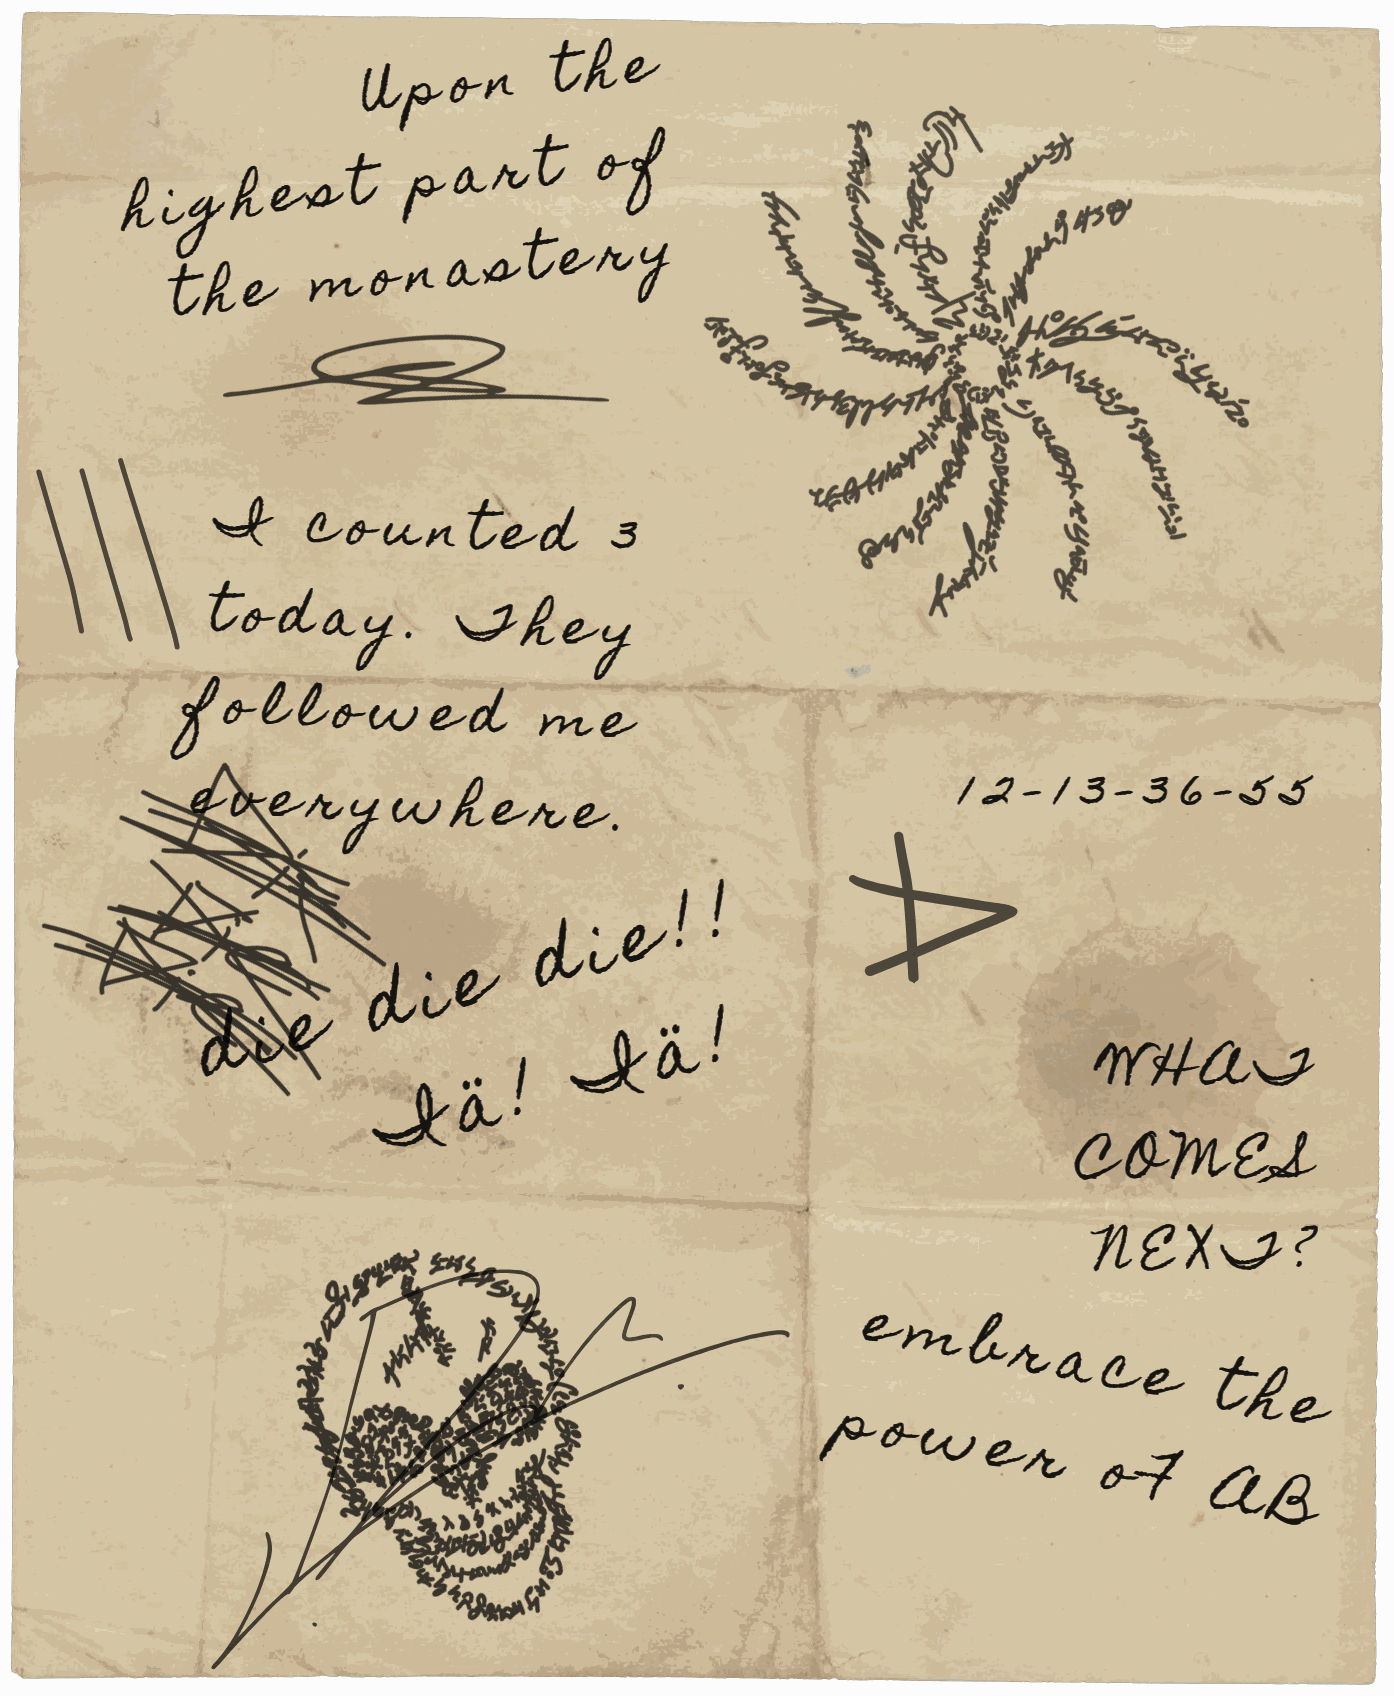 Upon the
highest part of
the monastery
I counted 3
today. They
followed me
everywhere.
die die die!!
Iä! Iä!
12-13-36-55
WHAT
COMES
NEXT?
embrace the
power of AB